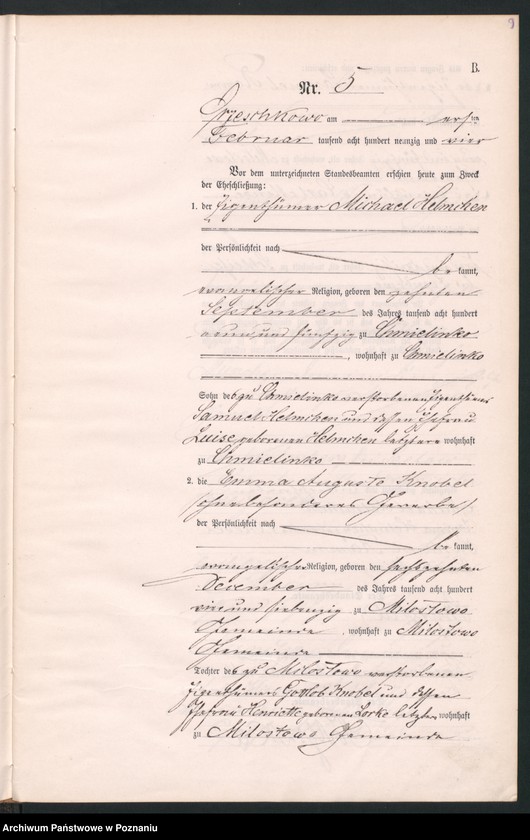 9
B.
Nr. 5
Grzeschkowo am ersten
Februar tausend acht hundert neunzig und vier
Vor dem unterzeichneten Standesbeamten erschien heute zum Zweck
der Eheschließung:
1. der Eigenthümer Michael Helmchen
der Persönlichkeit nach
be kannt,
evangelischer Religion, geboren den zehnten
September des Jahres tausend acht hundert
und fünfzig zu Chmielinko
, wohnhaft zu Chmielinko
Sohn des zu Chmielinko verstorbenen Eigenthümer
Samuel Helmchen und dessen Ehefrau
Luise geborenen Helmchen letztere wohnhaft
zu Chmielinko
2. die Emma Auguste Knobel
ohne besonderes Gewerbe
der Persönlichkeit nach
be kannt,
evangelischer Religion, geboren den sechszehnten
December des Jahres tausend acht hundert
vier und siebenzig zu Milostowo
Gemeinde, wohnhaft zu Milostowo
Gemeinde
Tochter des zu Milostowo verstorbenen
Eigenthümers Gottlob Knobel und dessen
Ehefrau Henriette geborenen Lorke letztere wohnhaft
zu Milostowo Gemeinde
Archiwum Państwowe w Poznaniu